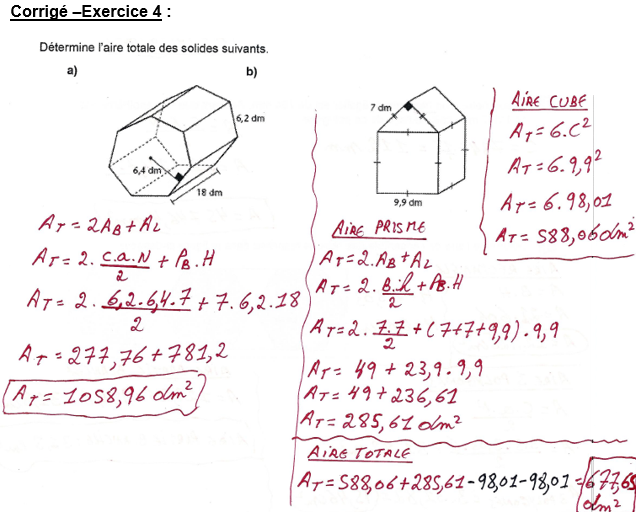 Corrigé –Exercice 4 :
Détermine l'aire totale des solides suivants.
a)
6,2 dm
6,4 dm
18 dm
A_T = 2A_B + A_L
A_T = 2 . c.a.N/2 + P_B . H
A_T = 2 . 6,2.6,4.7/2 + 7.6,2.18
A_T = 277,76 + 781,2
A_T = 1058,96 dm²
b)
7 dm
9,9 dm
AIRE PRISME
A_T = 2.A_B + A_L
A_T = 2 . B.h/2 + P_B.H
A_T = 2 . 7.7/2 + (7+7+9,9) . 9,9
A_T = 49 + 23,9 . 9,9
A_T = 49 + 236,61
A_T = 285,61 dm²
AIRE CUBE
A_T = 6.C²
A_T = 6.9,9²
A_T = 6.98,01
A_T = 588,06 dm²
AIRE TOTALE
A_T = 588,06 + 285,61 - 98,01 - 98,01 = 677,65
dm²